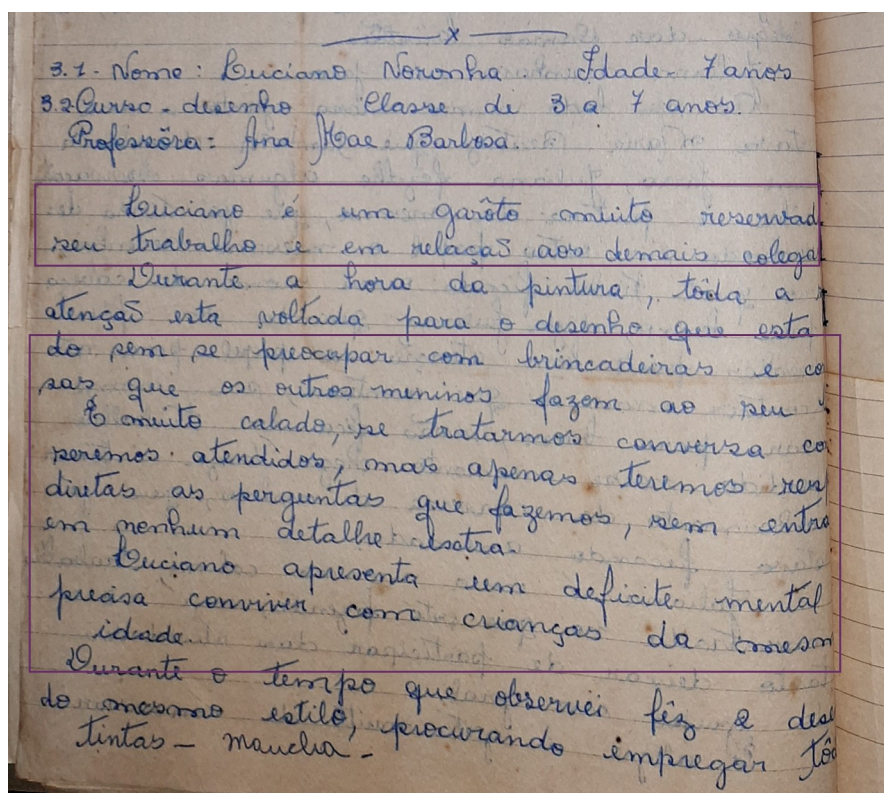 x
3.1 - Nome: Luciano Noronha Idade 7 anos
3.2 Curso - desenho Classe de 3 a 7 anos.
Professôra: Ana Mae Barbosa.
Luciano é um garôto muito reservad
seu trabalho e em relação aos demais colega
Durante a hora da pintura, tôda a
atenção esta voltada para o desenho que esta
do sem se preocupar com brincadeiras e co
sas que os outros meninos fazem ao seu
É muito calado, se tratarmos conversa co
seremos atendidos, mas apenas teremos res
diretas as perguntas que fazemos, sem entra
em nenhum detalhe estra.
Luciano apresenta um deficite mental
precisa conviver com crianças da mesm
idade.
Durante o tempo que observei fêz 2 dese
do mesmo estilo, procurando empregar tôd
tintas - mancha -